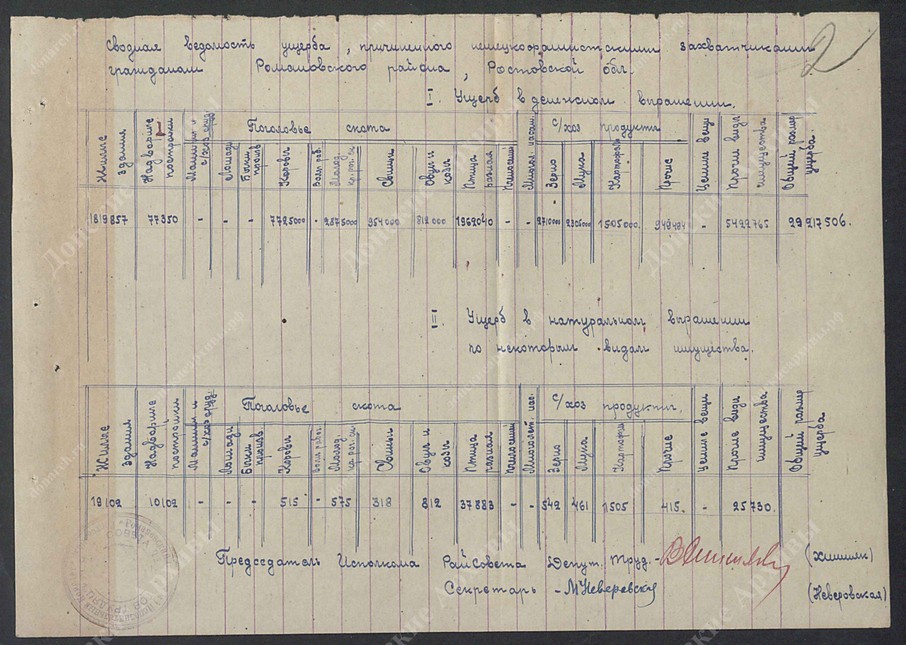 Сводная ведомость ущерба, причиненного немецкофашистскими захватчиками
гражданам Романовского района, Ростовской обл.
2
I. Ущерб в денежном выражении.
Жилые здания
Надворные постройки
Машины и с/хоз оруд.
Поголовье скота
Лошади
Быки произв.
Коровы
Волы раб.
Молод. кр. рог. ск.
Свиньи
Овцы и козы
Птица разная
Пчелосемьи
Многол. насаж.
с/хоз продукты
Зерно
Мука
Картофель
Прочие
Ценные вещи
Прочие виды имущества
Общий размер ущерба.
1819857 77350 - - - 7725000 - 2875000 954000 812000 1962040 - - 2710000 2305000 1505000 949494 - 5422765 29217506.
II. Ущерб в натуральном выражении
по некоторым видам имущества.
Жилые здания
Надворные постройки
Машины и с/хоз оруд.
Поголовье скота
Лошади
Быки произв.
Коровы
Волы рабоч.
Молод. кр. рог. ск.
Свиньи
Овцы и козы
Птица разная
Пчелосемьи
Многолет. нас.
с/хоз продукты.
Зерно
Мука
Картофель
Прочие
Ценные вещи
Прочие виды имущества
Общий размер ущерба
19102 10102 - - - 515 - 575 318 812 37883 - - 542 461 1505 415 - 25730.
Председатель Исполкома РайСовета Депут. Труд. - (Химияк)
Секретарь - МНеверовску (Неверовская)
Донские Архивы